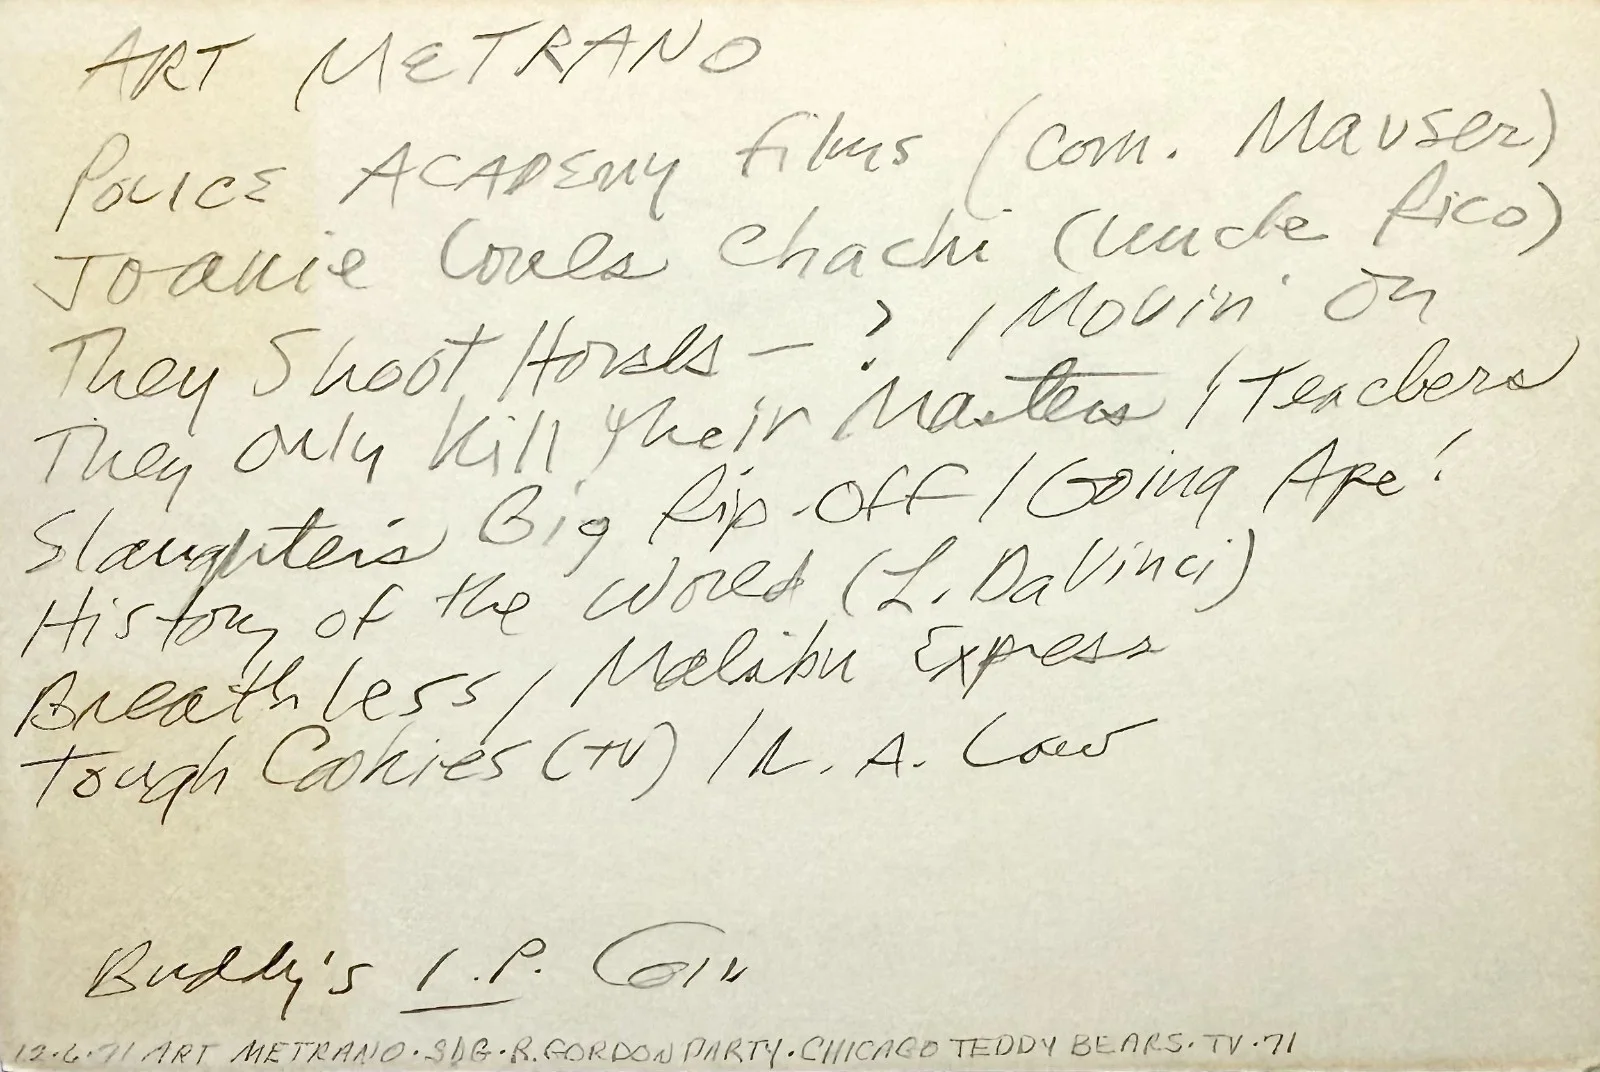 ART METRANO
POLICE ACADEMY films (Com. Mauser)
Joanie Loves Chachi (Uncle Rico)
They Shoot Horses - ? / Movin' On
They Only Kill Their Masters / Teachers
Slaughter's Big Rip-Off / Going Ape!
History of the World (L. DaVinci)
Breathless / Malibu Express
Tough Cookies (TV) / L. A. Law
Buddy's I.P. Coin
12·6·71 ART METRANO · SDG · R. GORDON PARTY · CHICAGO TEDDY BEARS · TV · 71